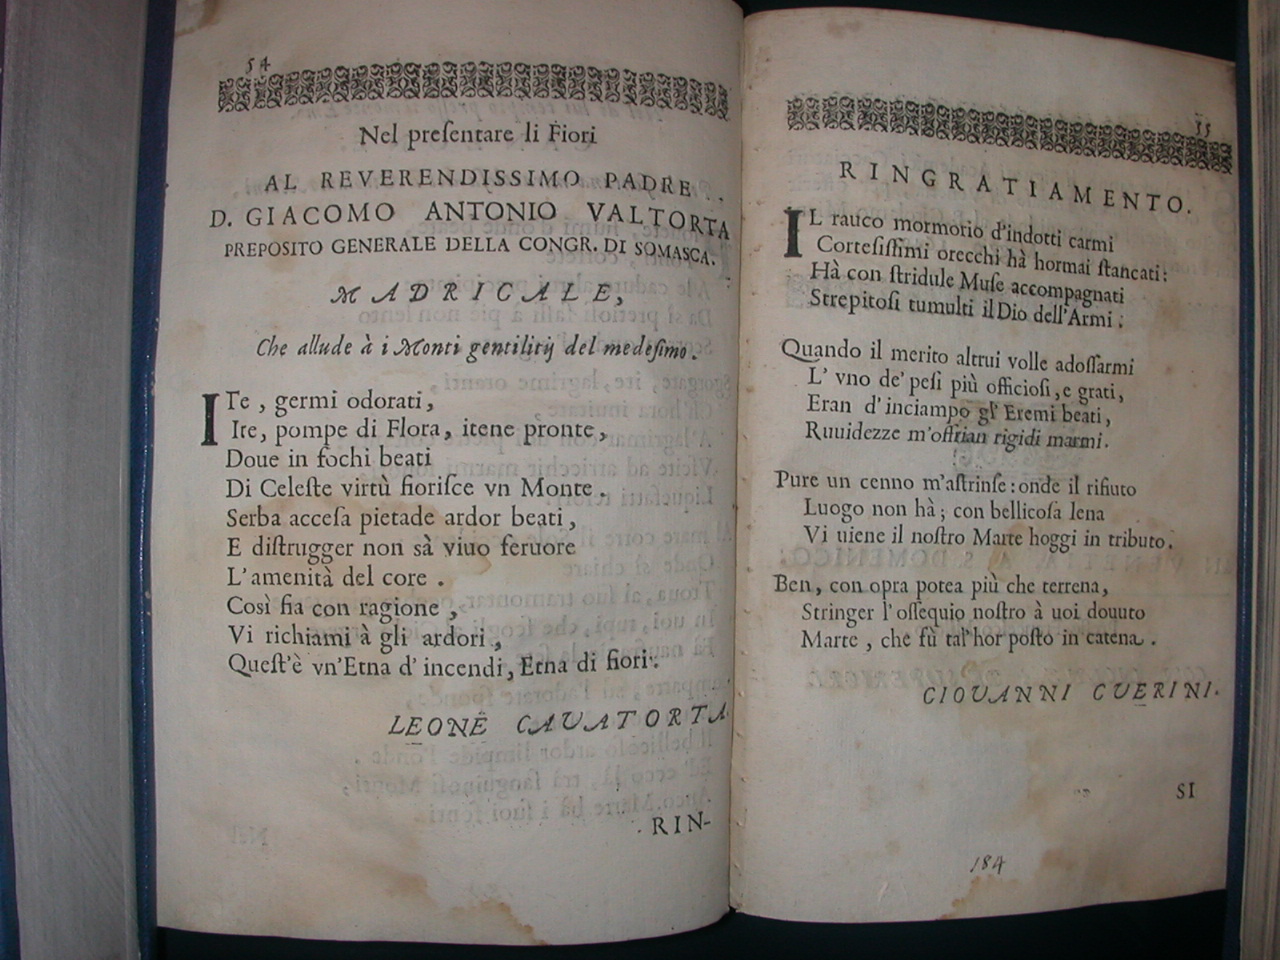 54
Nel preſentare li Fiori
AL REVERENDISSIMO PADRE
D. GIACOMO ANTONIO VALTORTA
PREPOSITO GENERALE DELLA CONGR. DI SOMASCA.
MADRIGALE,
Che allude à i Monti gentilitij del medeſimo.
ITe, germi odorati,
Ite, pompe di Flora, itene pronte,
Doue in fochi beati
Di Celeſte virtù fioriſce vn Monte.
Serba acceſa pietade ardor beati,
E diſtrugger non sà viuo feruore
L'amenità del core.
Così fia con ragione,
Vi richiami à gli ardori,
Queſt'è vn'Etna d'incendi, Etna di fiori.
LEONE CAUATORTA
RIN-
55
RINGRATIAMENTO.
IL rauco mormorio d'indotti carmi
Corteſiſſimi orecchi hà hormai ſtancati:
Hà con ſtridule Muſe accompagnati
Strepitoſi tumulti il Dio dell'Armi.
Quando il merito altrui volle adoſſarmi
L' vno de' peſi più officioſi, e grati,
Eran d'inciampo gl' Eremi beati,
Ruuidezze m'offrian rigidi marmi.
Pure un cenno m'aſtrinſe: onde il rifiuto
Luogo non hà; con bellicoſa lena
Vi uiene il noſtro Marte hoggi in tributo.
Ben, con opra potea più che terrena,
Stringer l'oſſequio noſtro à uoi douuto
Marte, che fù tal'hor poſto in catena.
GIOUANNI GUERINI.
SI
184